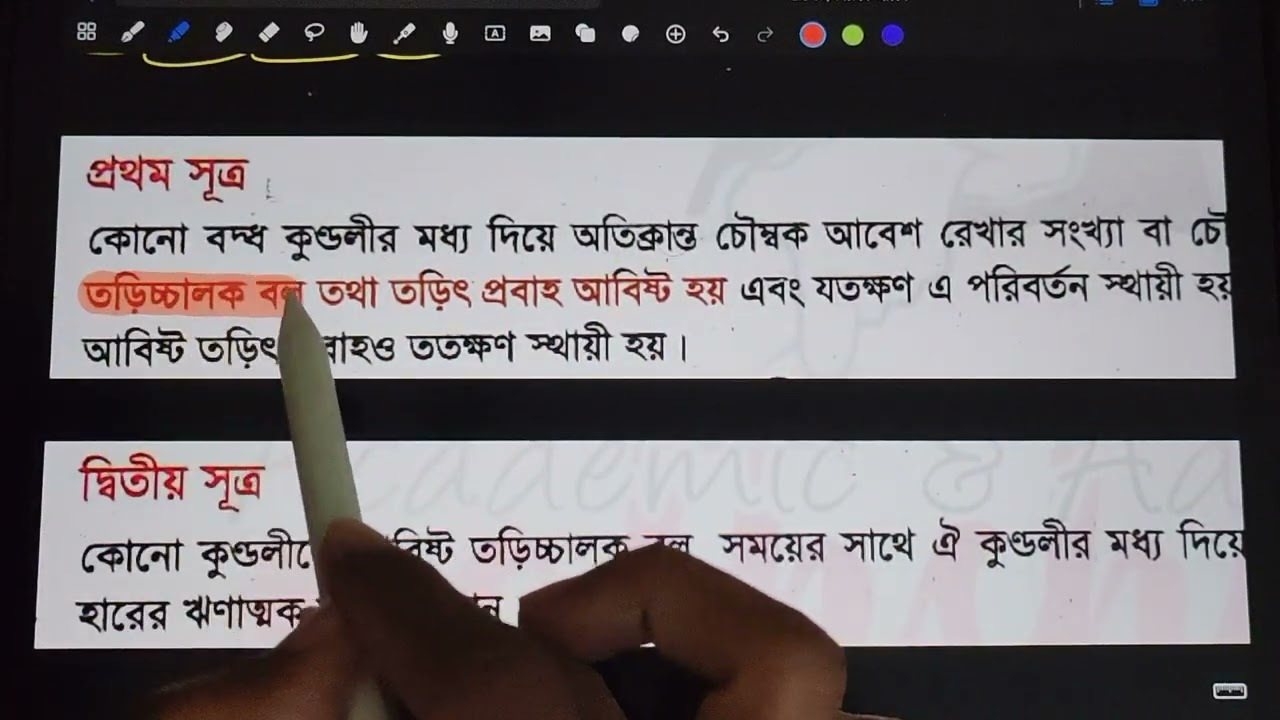 প্রথম সূত্র
কোনো বদ্ধ কুণ্ডলীর মধ্য দিয়ে অতিক্রান্ত চৌম্বক আবেশ রেখার সংখ্যা বা চৌ
তড়িচ্চালক বল তথা তড়িৎ প্রবাহ আবিষ্ট হয় এবং যতক্ষণ এ পরিবর্তন স্থায়ী হয়
আবিষ্ট তড়িৎ বাহও ততক্ষণ স্থায়ী হয়।
Academic & Ad
দ্বিতীয় সূত্র
কোনো তড়িচ্চালক বল সময়ের সাথে ঐ কুণ্ডলীর মধ্য দিয়ে
হারের ঋণাত্মক